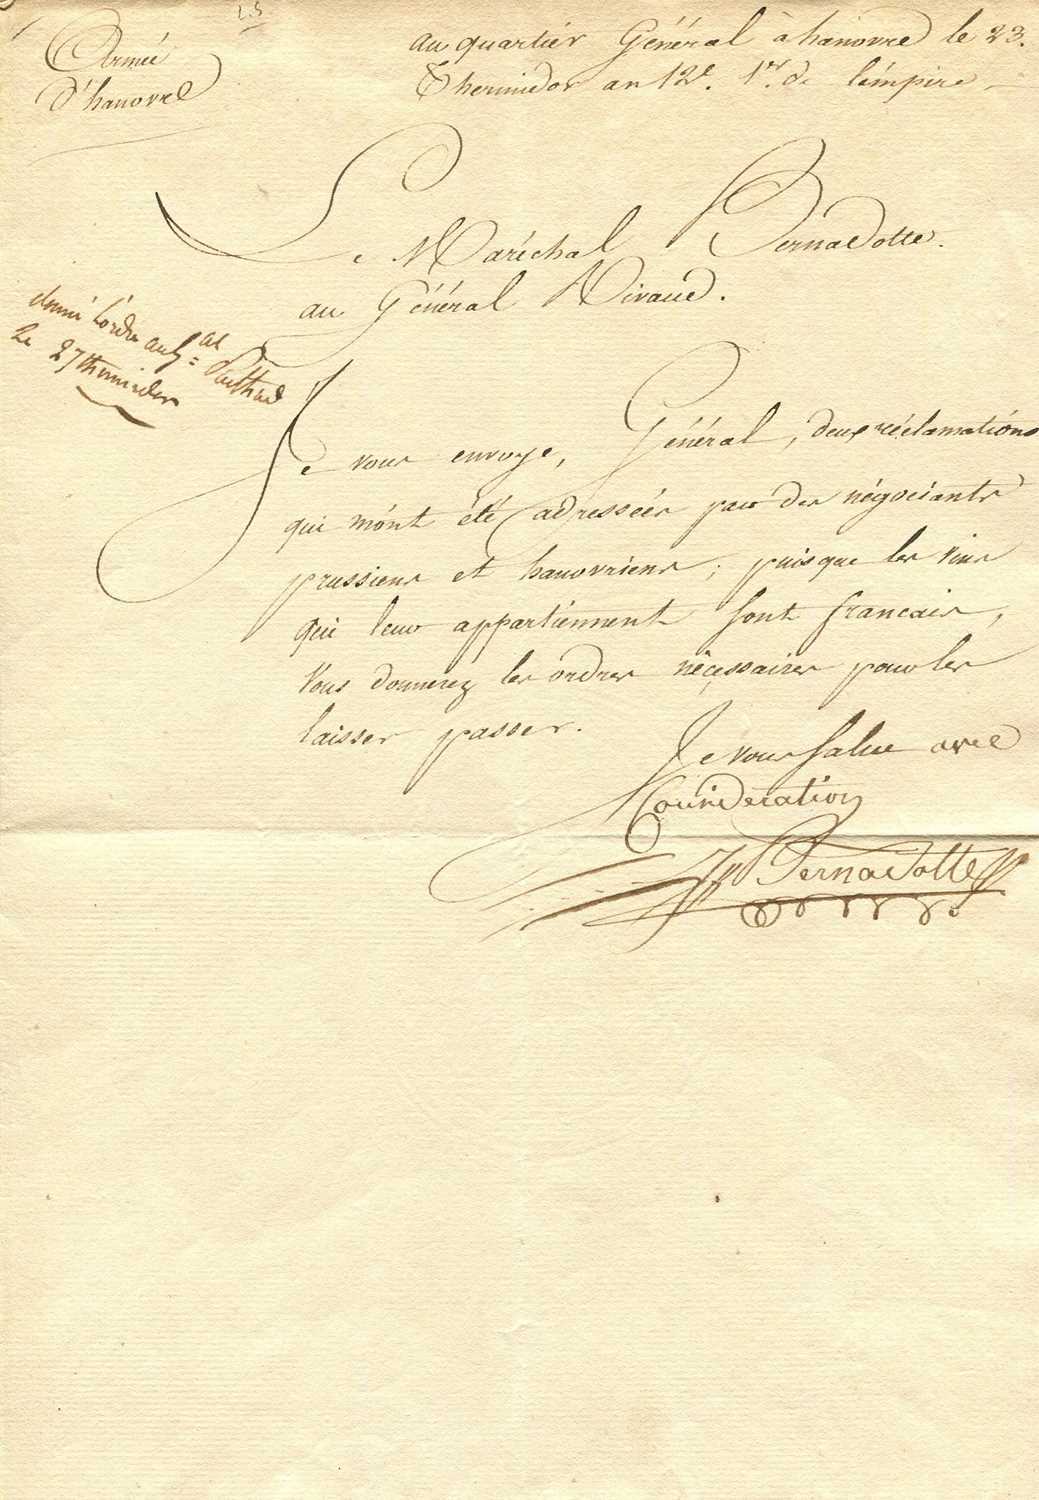 Armée
d'hanovre
au quartier Général à hanovre le 23.
Thermidor an 12e. 1er. de l'empire
Le Maréchal Bernadotte.
au Général Rivaud.
donné l'ordre au Gal
le 27 thermidor
Je vous envoye, Général, deux réclamations
qui m'ont été adressées par des négociants
prussiens et hanovriens; puisque les vins
qui leur appartiennent sont francais,
Vous donnerez les ordres nécessaires pour les
laisser passer.
Je vous salue avec
Considération
Bernadotte